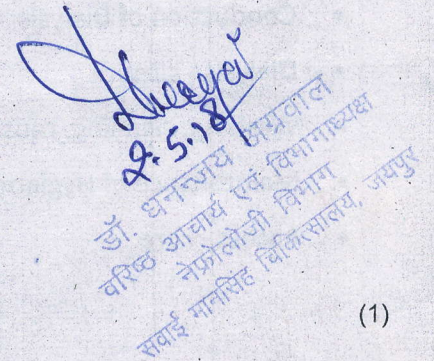 2.5.18
डॉ. धनन्जय अग्रवाल
वरिष्ठ आचार्य एवं विभागाध्यक्ष
नेफ्रोलोजी विभाग
सवाई मानसिंह चिकित्सालय, जयपुर
(1)